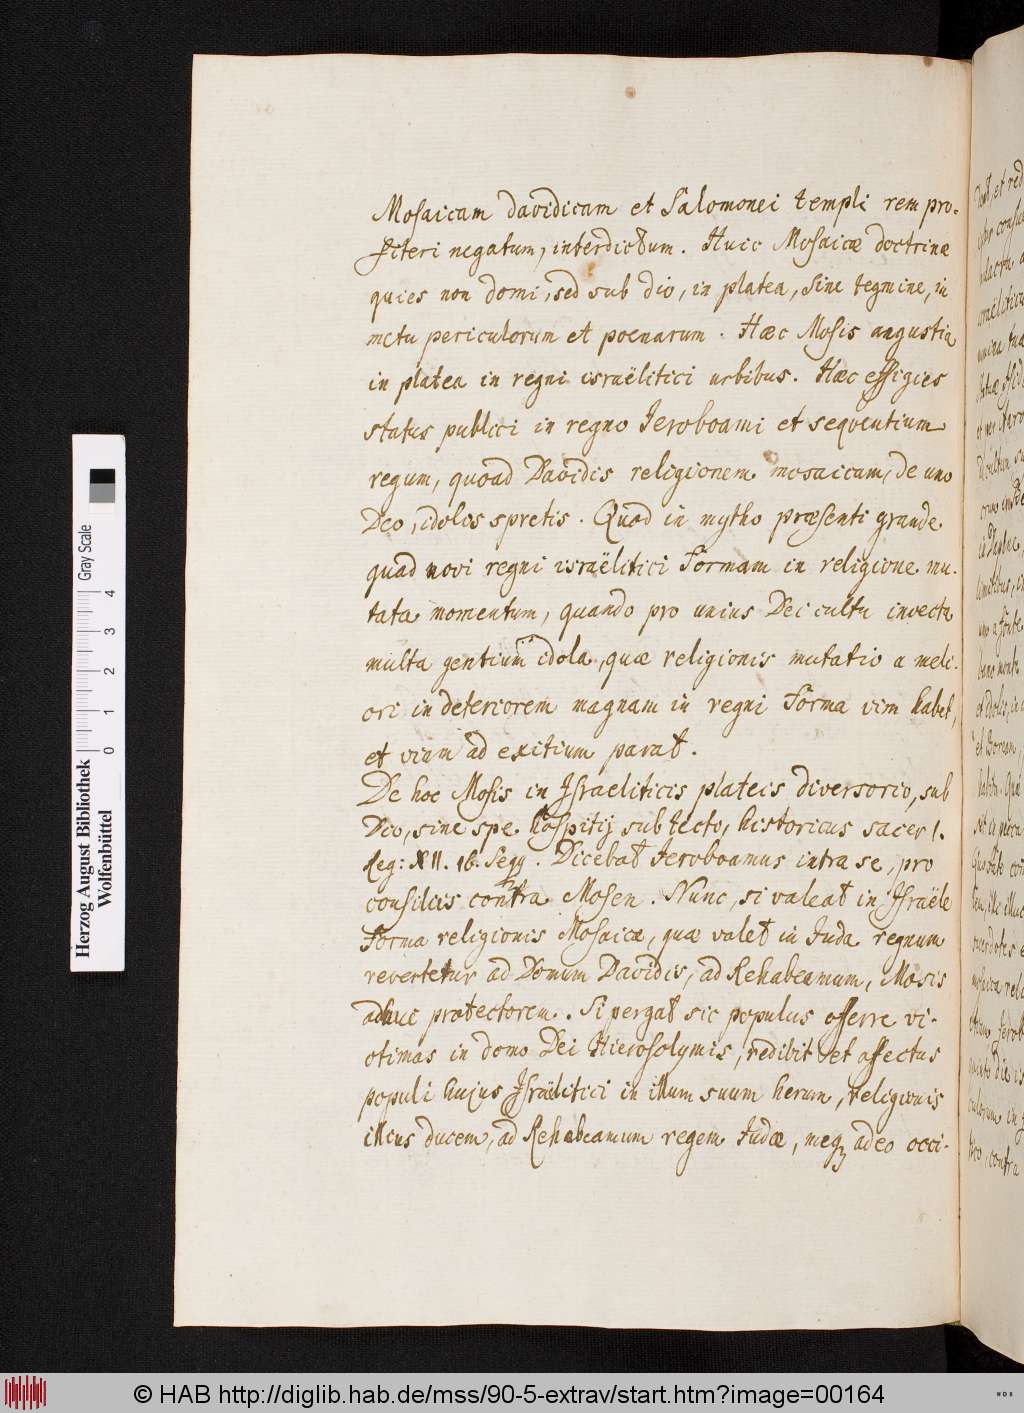 Mosaicam davidicam et Salomonei templi rem pro-
fiteri negatum, interdictum. Huic Mosaicæ doctrinæ
quies non domi, sed sub dio, in platea, sine tegmine, in
metu periculorum et poenarum. Hæc Mosis angustia
in platea in regni israëlitici urbibus. Hæc effigies
status publici in regno Jeroboami et seqventium
regum, quoad Davidis religionem mosaicam, de uno
Deo, idolis spretis. Quod in mytho præsenti grande
quad novi regni israëlitici formam in religione mu-
tata momentum, quando pro unius Dei cultu invecta
multa gentium idola, quæ religionis mutatio a meli-
ori in deteriorem magnam in regni forma vim habet,
et viam ad exitium parat.
De hoc Mosis in Israeliticis plateis diversorio, sub
Dio, sine spe hospitij sub tecto, historicus sacer 1.
Reg: XII. 16. seqq. Dicebat Jeroboamus intra se, pro
consiliis contra Mosen. Nunc, si valeat in Israële
forma religionis Mosaicæ, quæ valet in Juda regnum
revertetur ad Domum Davidis, ad Rehabeamum, Mosis
adhuc protectorem. Si pergat sic populus offerre vi-
ctimas in domo Dei Hierosolymis, redibit et affectus
populi hujus Israëlitici in illum suum herum, religionis
illius ducem, ad Rehabeamum regem Judæ, meqꝫ adeo occi-
Herzog August Bibliothek
Wolfenbüttel
Gray Scale
0 1 2 3 4
© HAB http://diglib.hab.de/mss/90-5-extrav/start.htm?image=00164